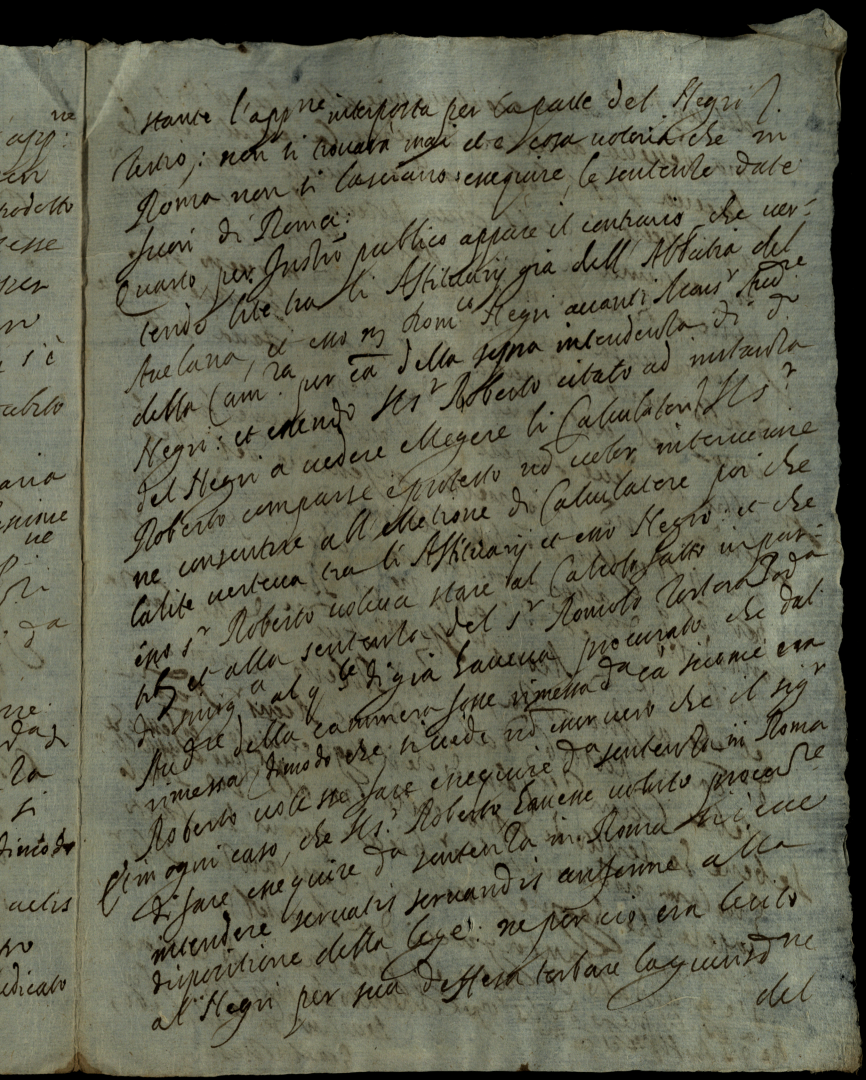 stante l'app.ne interposta per la parte del Negri
Terzo: non si trovarà mai et è cosa notoria che in
Roma non si lasciano esequire le sentenze date
fuori di Roma:
Quarto per Instro publico appare il contrario che ver-
tendo lite tra li Affituarij già dell'Abbatia del
Avelana, et esso Dom.co Negri avanti Mons.r Aud.re
della Cam.ra per ca della intendenza di d.o
Negri: et essendo Il s.r Roberto citato ad instanza
del Negri a vedere ellegere li Calculatori Il s.r
Roberto comparse e protestò nō voler intervenire
ne consentire all'elletione di Calculatore poi che
la lite verteva tra li Affituarij et esso Negro: et che
esso s.r Roberto voleva stare al Calcolo fatto in par-
et alla sentenza del s.r Romolo Tortora
di al q.le di già haveva procurato che dal
Aud.re della cammera fosse rimessa d.a ca sicome era
rimessa, dimodo che si vede nō esser vero che il sig.r
Roberto volesse fare esequire d.a sentenza in Roma
E in ogni caso, che Il s.r Roberto havesse voluto
di fare esequire d.a sentenza in Roma si deve
intendere servatis servandis conforme alla
dispositione della legge: ne per ciò era lecito
al Negri per sua deffesa turbare la giurisd.ne
del